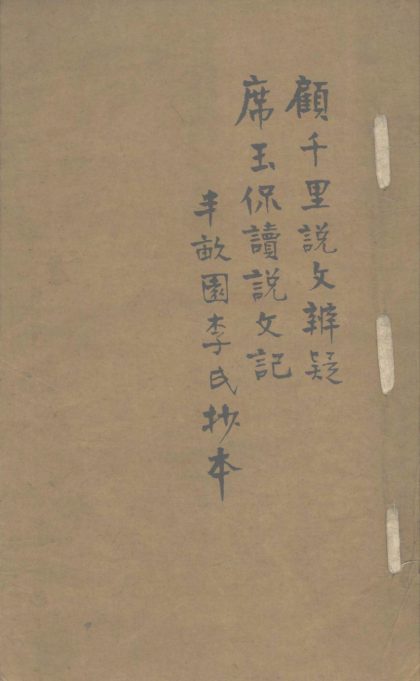 顧千里説文辨疑
席玉保讀説文記
半畝園李氏抄本